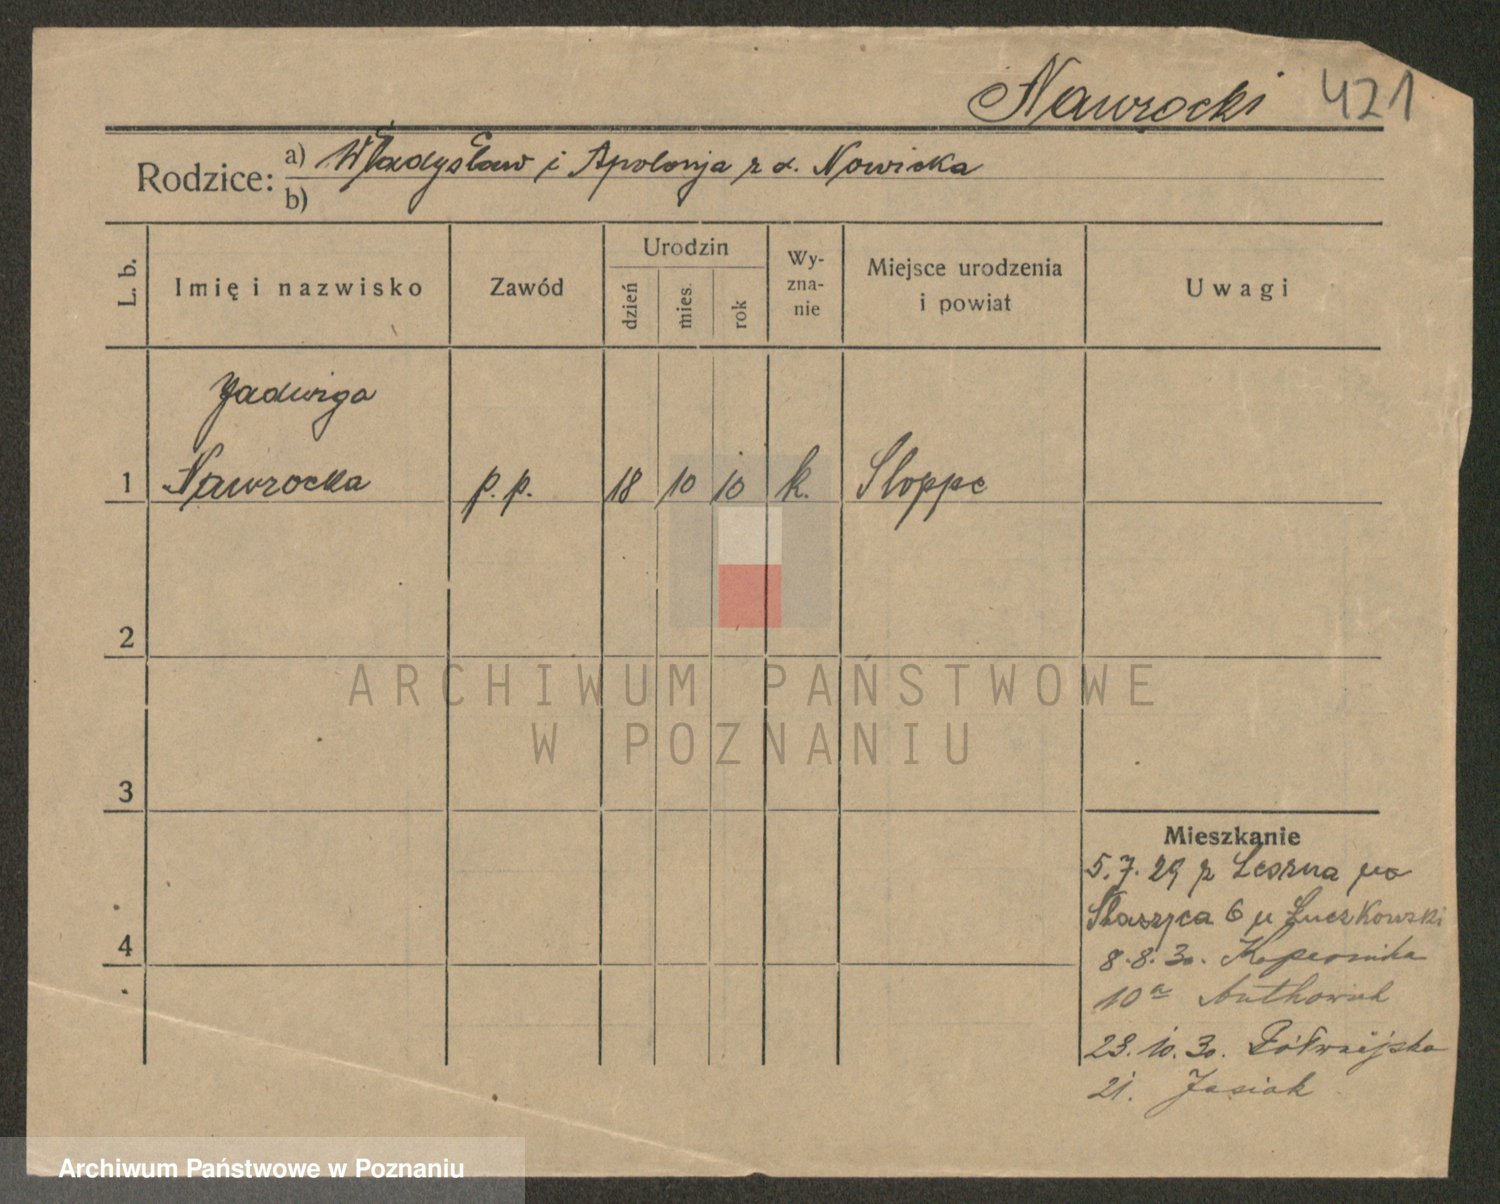 Nawrocki 421
Rodzice: a) Władysław i Apolonja z d. Nowicka
b)
L. b. Imię i nazwisko Zawód Urodzin dzień mies. rok Wy-zna-nie Miejsce urodzenia i powiat Uwagi
Jadwiga
1 Nawrocka p. p. 18 10 10 k. Sloppe
2
3
4
Mieszkanie
5.7.29 z Leszna na
Staszyca 6 u Łuczkowski
8.8.30. Kopernika
10a
23.10.30. Półwiejska
21. Jasiak
ARCHIWUM PAŃSTWOWE
W POZNANIU
Archiwum Państwowe w Poznaniu